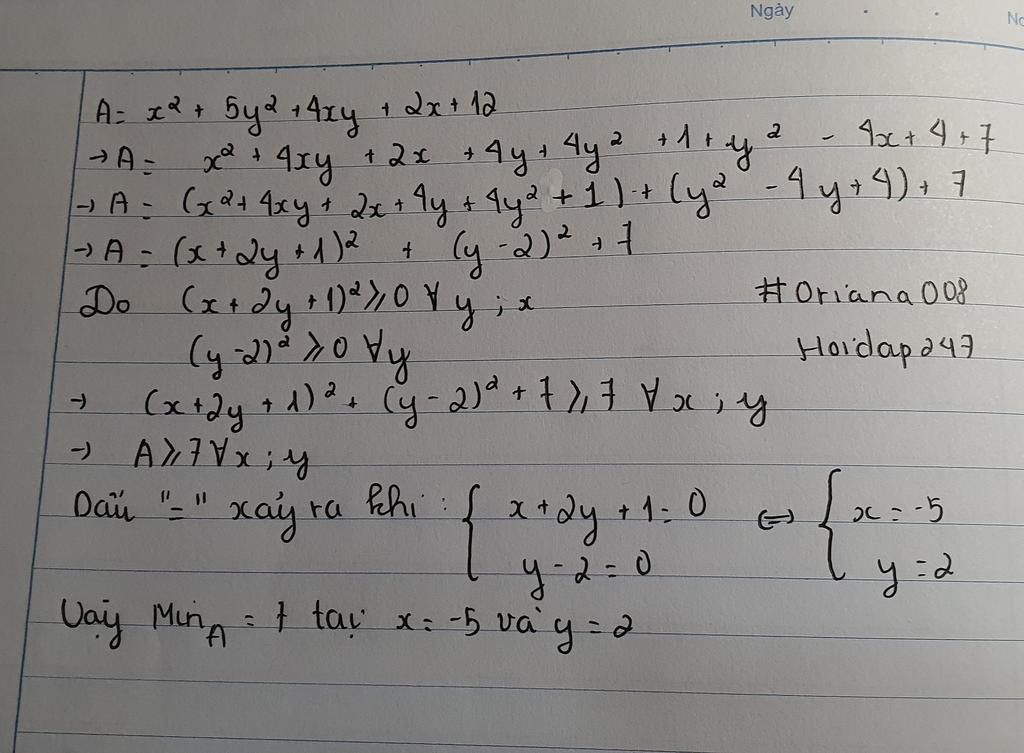 Ngày
No
A= x² + 5y² + 4xy + 2x + 12
→ A = x² + 4xy + 2x + 4y + 4y² + 1 + y² - 4x + 4 + 7
→ A = (x² + 4xy + 2x + 4y + 4y² + 1) + (y² - 4y + 4) + 7
→ A = (x + 2y + 1)² + (y - 2)² + 7
Do (x + 2y + 1)² ⩾ 0 ∀ y ; x #Oriana008
(y - 2)² ⩾ 0 ∀y Hoidap247
→ (x + 2y + 1)² + (y - 2)² + 7 ⩾ 7 ∀ x ; y
→ A ⩾ 7 ∀ x ; y
Dấu "=" xảy ra khi : { x + 2y + 1 = 0 ⇔ { x = -5
y - 2 = 0 y = 2
Vậy Min_A = 7 tại x = -5 và y = 2